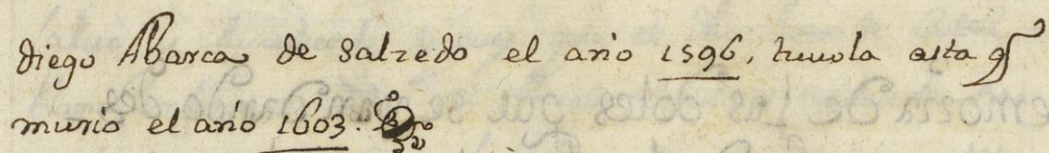 diego Abarca de Salzedo el año 1596, tuuola asta q
murio el año 1603.